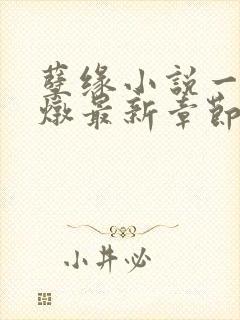 孽缘小説一
燉最新章節
小井必